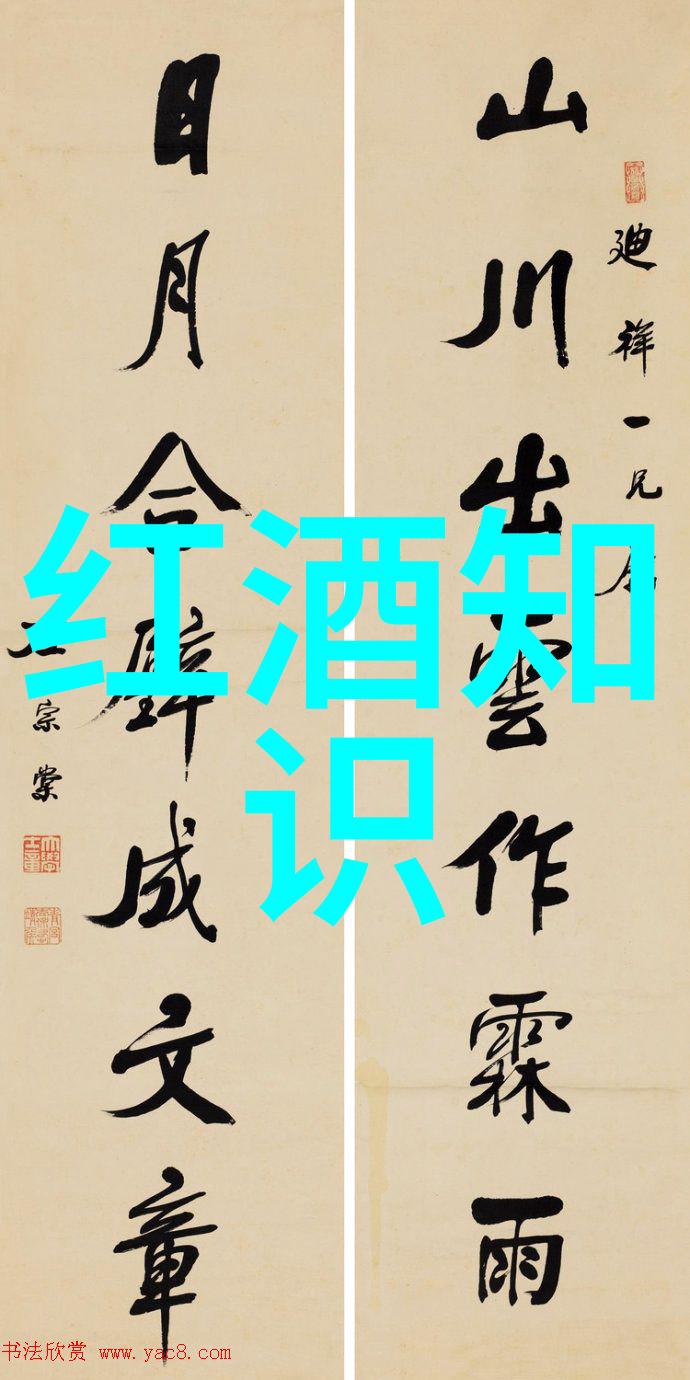 山川出雲作霖雨
廸祥一兄屬
日月合璧成文章
左宗棠
红酒知
识
书法欣赏 www.yac8.com